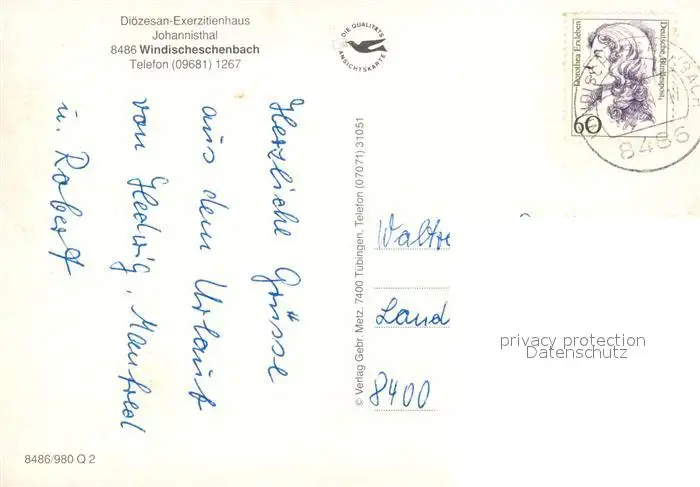 Diözesan-Exerzitienhaus
Johannisthal
8486 Windischeschenbach
Telefon (09681) 1267
DIE QUALITÄTS
ANSICHTSKARTE
Dorothea Erxleben
Deutsche Bundespost
60
8486
Herzliche Grüsse
aus dem Urlaub
von Hedwig, Manfred
u. Robert
© Verlag Gebr. Metz, 7400 Tübingen, Telefon (07071) 31051
Land
8400
privacy protection
Datenschutz
8486/980 Q 2